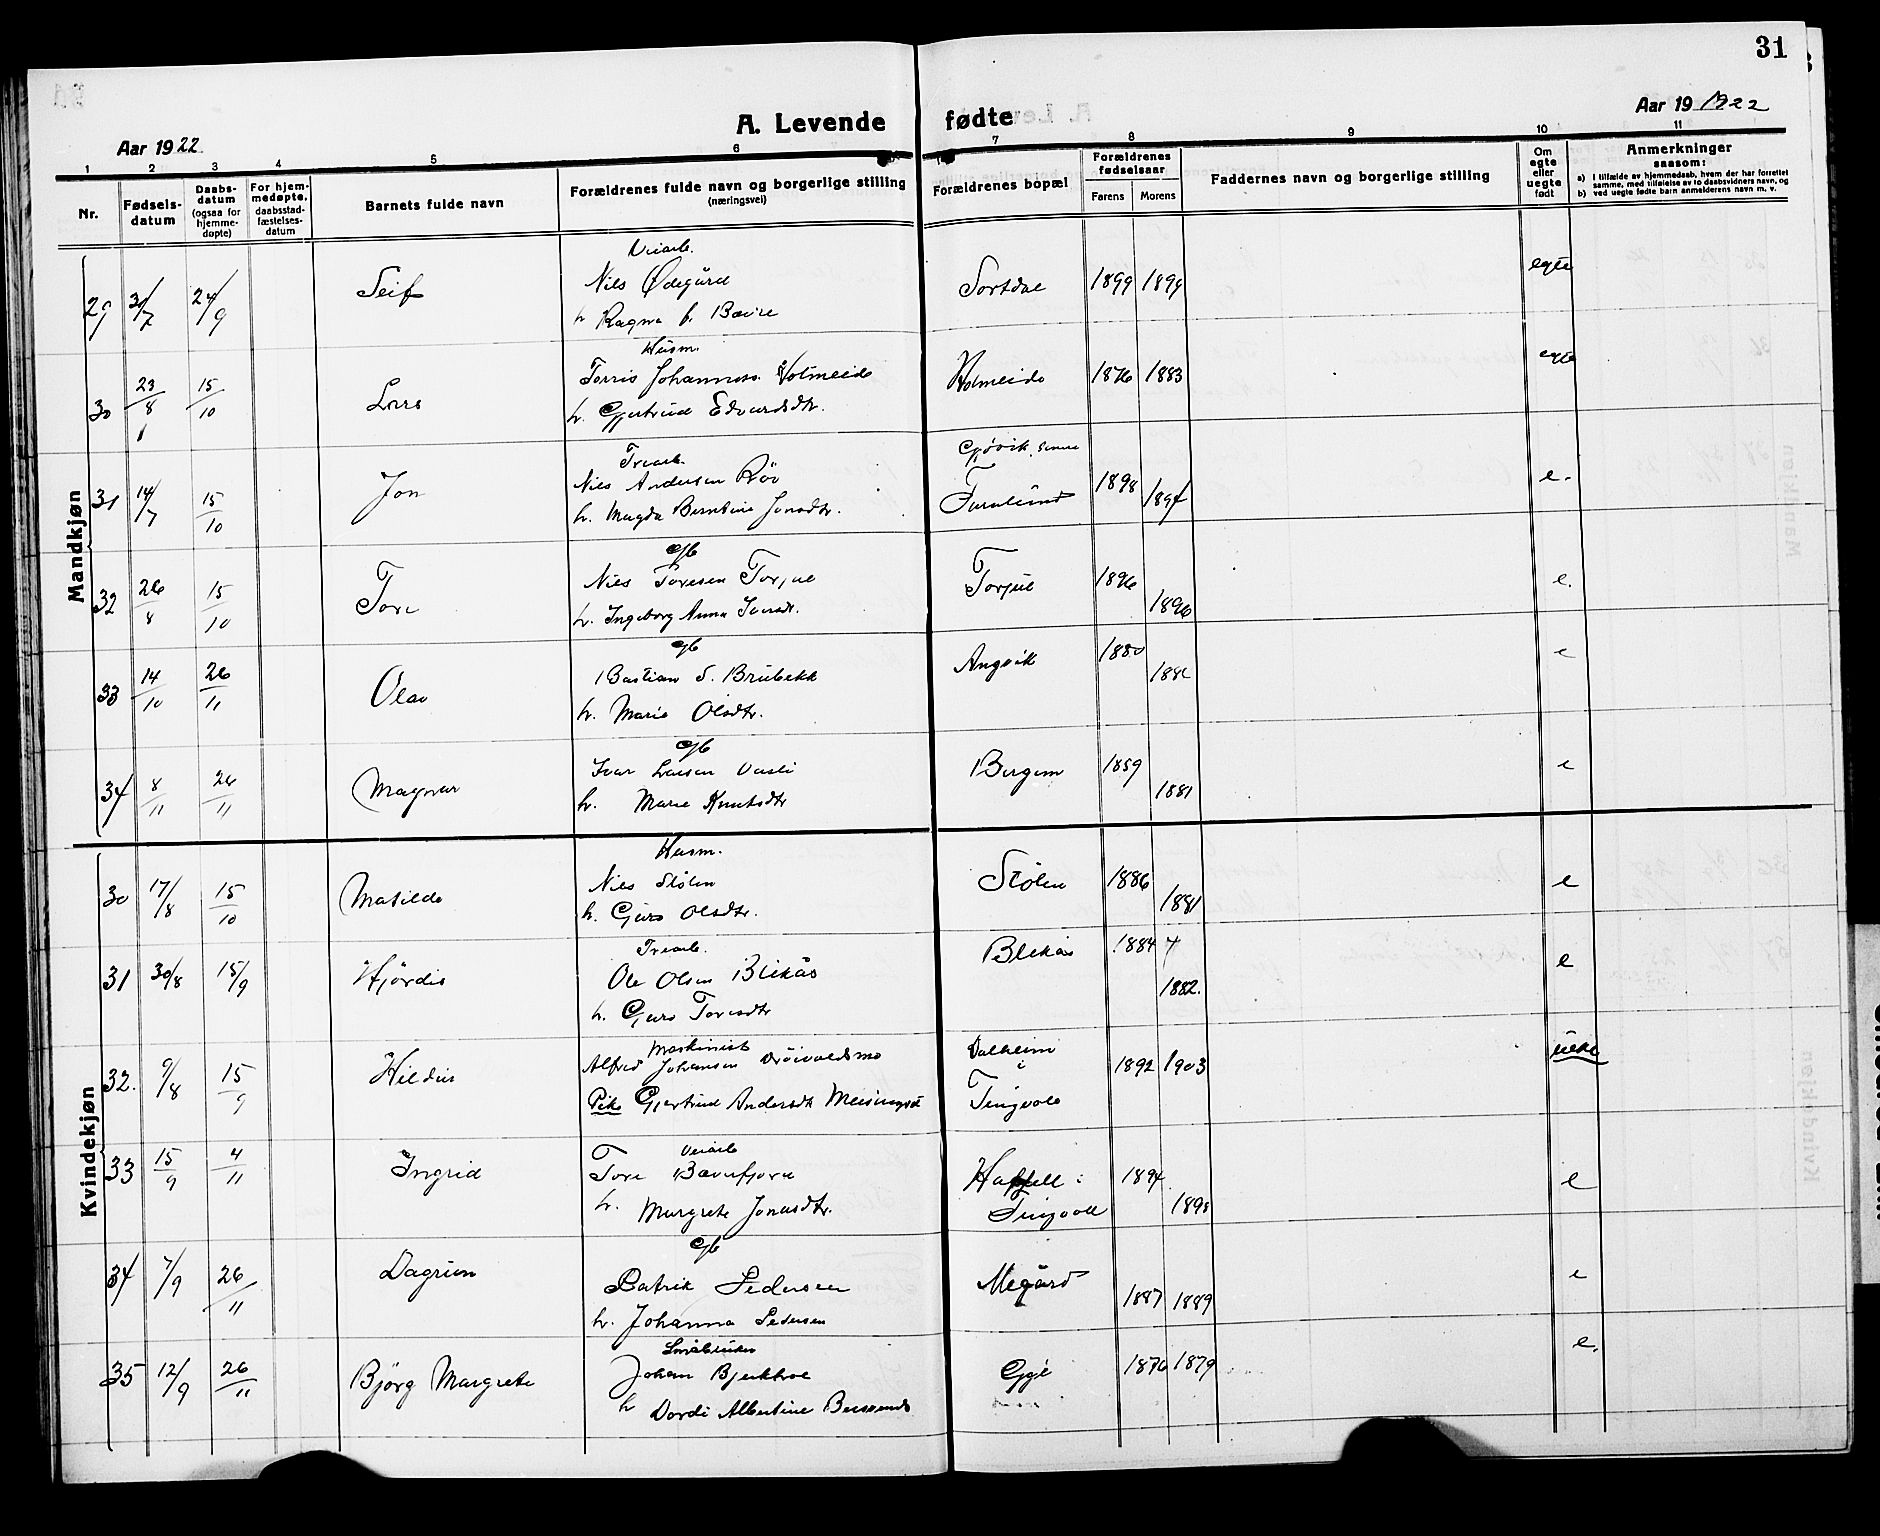 31
A. Levende fødte
Aar 1922.
Aar 19 1922
1 2 3 4 5 6 7 8 9 10 11
Nr.
Fødsels-
datum
Daabs-
datum
(ogsaa for
hjemme-
døpte)
For hjem-
medøpte,
daabsstad-
fæstelses-
datum
Barnets fulde navn
Forældrenes fulde navn og borgerlige stilling
(næringsvei)
Forældrenes bopæl
Forældrenes
fødselsaar
Farens
Morens
Faddernes navn og borgerlige stilling
Om
egte
eller
uegte
født
Anmerkninger
saasom:
a) I tilfælde av hjemmedaab, hvem der har forrettet
samme, med tilføielse av to daabsvidners navn, og
b) ved uegte fødte barn anmelderens navn m. v.
Mandkjøn
Veiarb.
29 31/7 24/9 Leif Nils Ødegård Sortdal 1899 1899 egte
h. Ragna f. Bævre
Husm.
30 23/8 15/10 Lars Torris Johanness. Holmeide Holmeide 1876 1883 egte
h. Gjertrud Edvardsdtr.
Træarb. Gjøvik
31 14/7 15/10 Jon Nils Andersen Røv Furulund 1898 1897 e.
h. Magda Berntine Jonsdtr.
Gb
32 26/8 15/10 Tore Nils Toresen Torjul Torjul 1896 1896 e.
h. Ingeborg Anna Iversdt.
Gb
33 14/10 26/11 Olav Bastian S. Brubekk Angvik 1880 e
h. Marie Olsdtr.
Gb
34 8/11 26/11 Magnar Ivar Larsen Bergem 1859 1881 e
h. Marie Knutsdtr
Kvindekjøn
Husm.
30 17/8 15/10 Matilde Nils Stølen Stølen 1886 1881 e
h. Guro Olsdtr.
Træarb.
31 30/8 15/9 Hjørdis Ole Olsen Blekås Blekås 1884 1882. e
h. Guro Toresdtr
Maskinist
32. 9/8 15/9 Alfred Johansen Drøivoldsmo Dalheim i 1892 1903 uekte
Pike Gjertrud Andersdt Meisingset Tingvold
Veiarb
33 15/9 4/11 Ingrid Tore Bæverfjord i 1894 e
h. Margrete Jonasdtr. Tingvoll
Gb
34 7/9 26/11 Dagrun Patrik Pedersen Megård 1887 1889 e
h. Johanna Pedersen
Småbruker
35 12/9 26/11 Bjørg Margrete Johan 1876 1879 e.
h Dordi Albertine